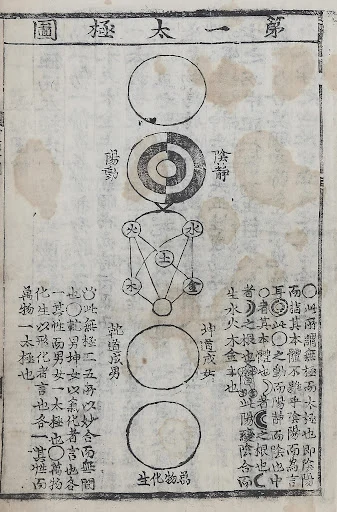 第一太極圖
陰靜
陽動
水
火
土
金
木
坤道成女
乾道成男
萬物化生
○此所謂無極而太極也即陰陽
而指其本體不雜乎陰陽而為言
耳◎此○之動而陽靜而陰也中
○者其本體也☽者☾之根也☾
者☽之根也此陽變陰合而
生水火木金土也
此無極二五所以妙合而無間
也○乾男坤女以氣化者言也各
一其性而男女一太極也○萬物
化生以形化者言也各一其性而
萬物一太極也